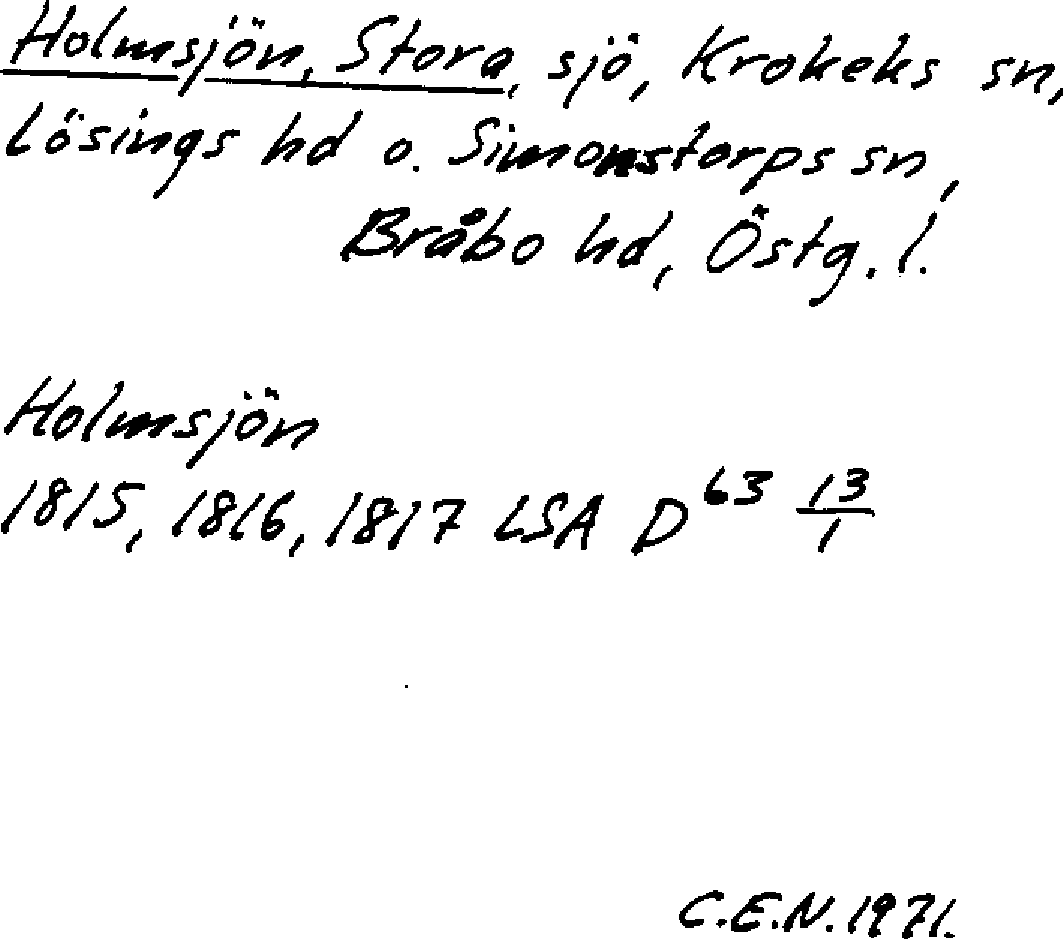 Holmsjön, Stora, sjö, Krokeks sn,
Lösings hd o. Simonstorps sn,
Bråbo hd, Östg. l.
Holmsjön
1815, 1816, 1817 LSA D 63 13/1
C.E.N. 1971.